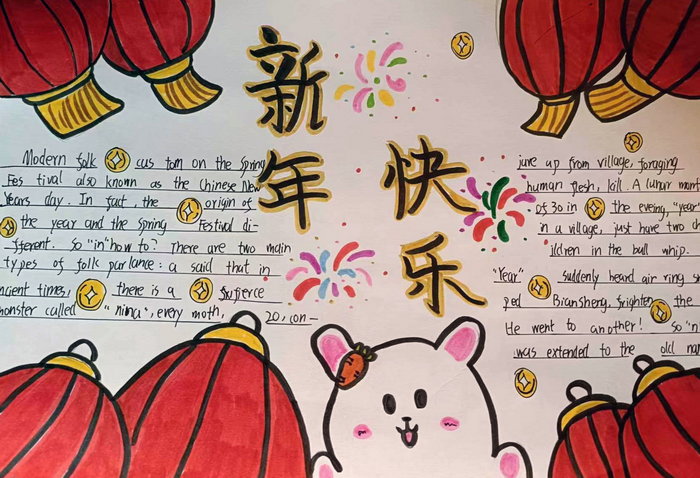 新年
快乐
Modern folk cus tom on the Spring
Fes tival also known as the Chinese New
Years day. In fact, the origin of
the year and the Spring Festival di-
fferent. so "in"how to? There are two main
types of folk parlance: a said that in
ncient times, there is a fierce
monster called "nina", every moth, 20, con-
jure up from village, foraging
human flesh, kill. A lunar mont
of 30 in the eveing, "year"
in a village, just have two ch
ildren in the bull whip.
"Year" suddenly heard air ring s
ped Biansheng, frighten the
He went to another! so "n
was extended to the old na